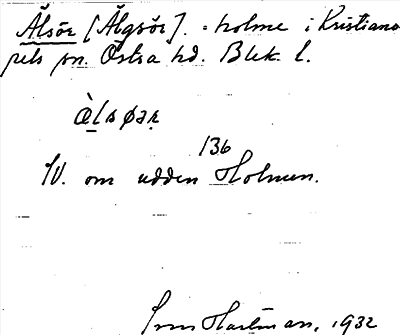 Älsör [Älgsör]. = holme i Kristiano
pels sn. Östra hd. Blek. l.
àlsøəṛ
SV. om udden Holmen.
136
Hartman, 1932